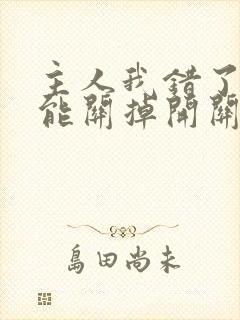 主人我错了
能關掉開關
島田尚未